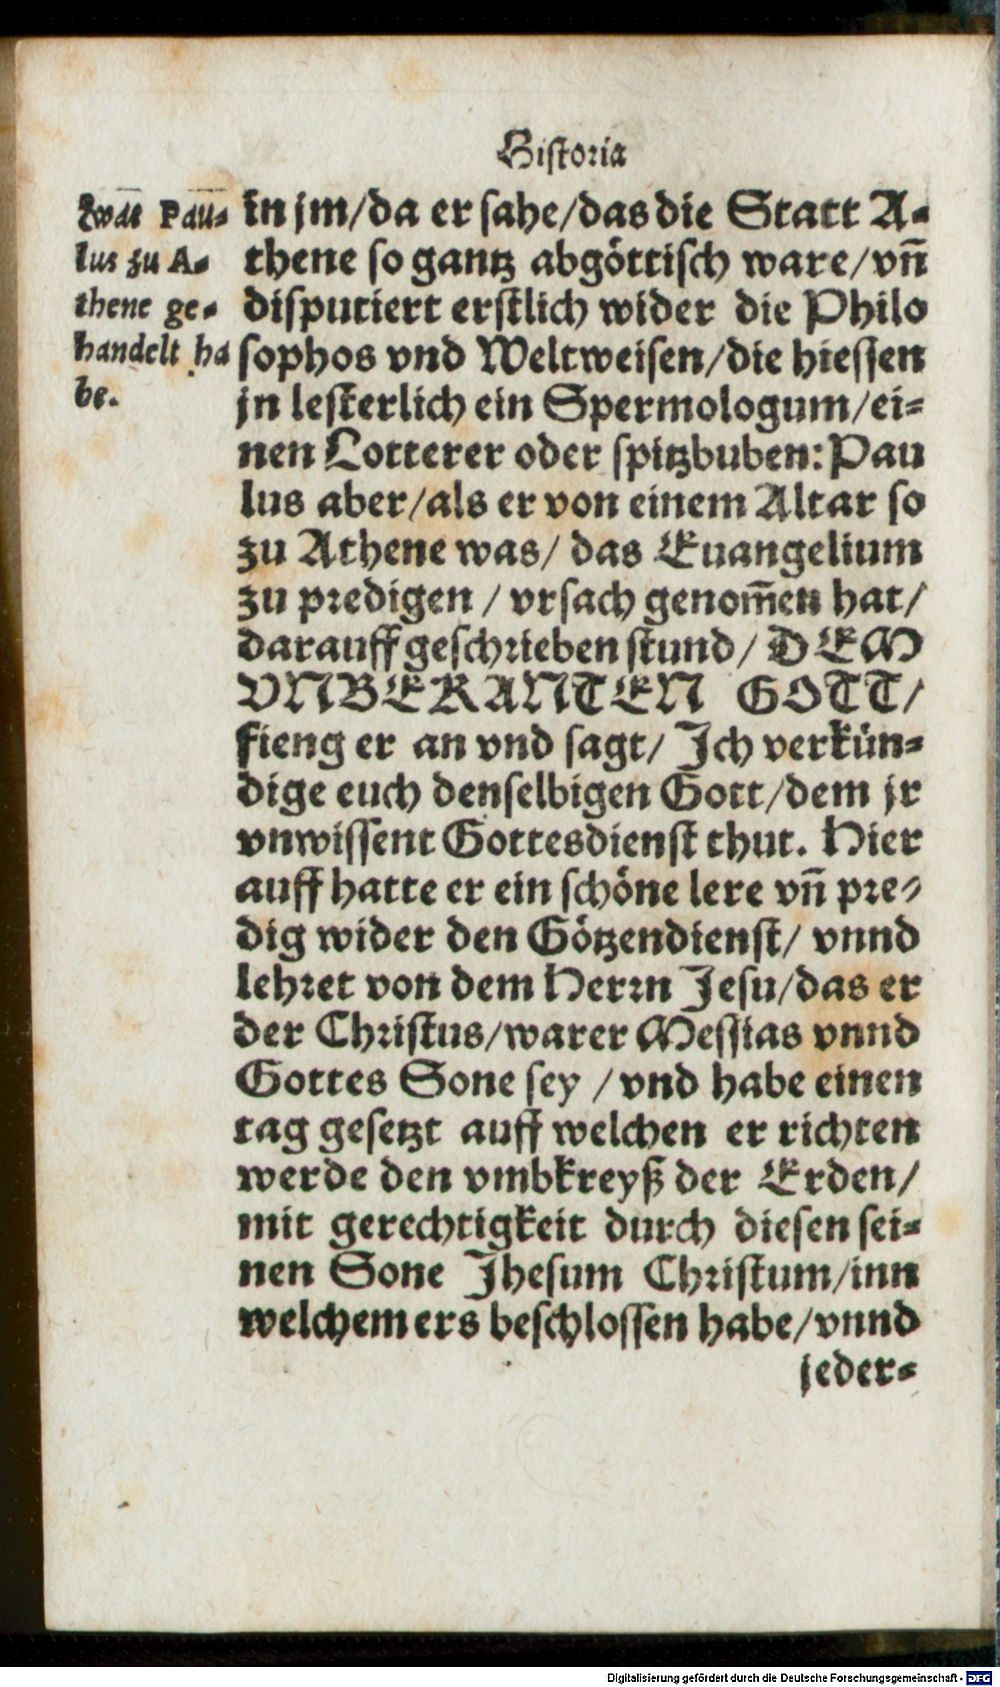 Historia
was Pau-
lus zu A-
thene ge-
handelt ha
be.
in jm/da er sahe/das die Statt A-
thene so gantz abgöttisch ware/vn̄
disputiert erstlich wider die Philo
sophos vnd Weltweisen/die hiessen
jn lesterlich ein Spermologum/ei-
nen Lotterer oder spitzbuben: Pau
lus aber/als er von einem Altar so
zu Athene was/ das Euangelium
zu predigen / vrsach genom̄en hat/
darauff geschrieben stund/ DEM
VNBEKANTEN GOTT/
fieng er an vnd sagt/ Ich verkün-
dige euch denselbigen Gott/dem jr
vnwissent Gottesdienst thut. Hier
auff hatte er ein schöne lere vn̄ pre-
dig wider den Götzendienst/ vnnd
lehret von dem Herrn Jesu/das er
der Christus/warer Messias vnnd
Gottes Sone sey / vnd habe einen
tag gesetzt auff welchen er richten
werde den vmbkreyß der Erden/
mit gerechtigkeit durch diesen sei-
nen Sone Jhesum Christum/inn
welchem ers beschlossen habe/vnnd
jeder-
Digitalisierung gefördert durch die Deutsche Forschungsgemeinschaft - DFG